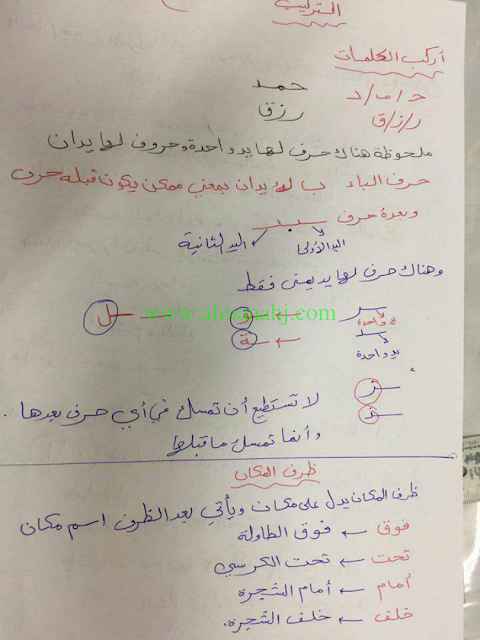 التركيب
أركب الكلمات
ح/م/د حمد
ر/ز/ق رزق
ملحوظة هناك حرف لها يد واحدة وحروف لها يدان
حرف الباء ب له يدان بمعنى ممكن يكون قبله حرف
وبعده حرف ـبـ
اليد الأولى اليد الثانية
وهناك حرف لها يد يمنى فقط
يد واحدة
يد واحدة
www.almanahj.com
لا تستطيع أن تمسك في أي حرف بعدها .
وأنما تمسك ما قبلها
ظرف المكان
ظرف المكان يدل على مكان ويأتي بعد الظرف اسم مكان
فوق ← فوق الطاولة
تحت ← تحت الكرسي
أمام ← أمام الشجرة
خلف ← خلف الشجرة.